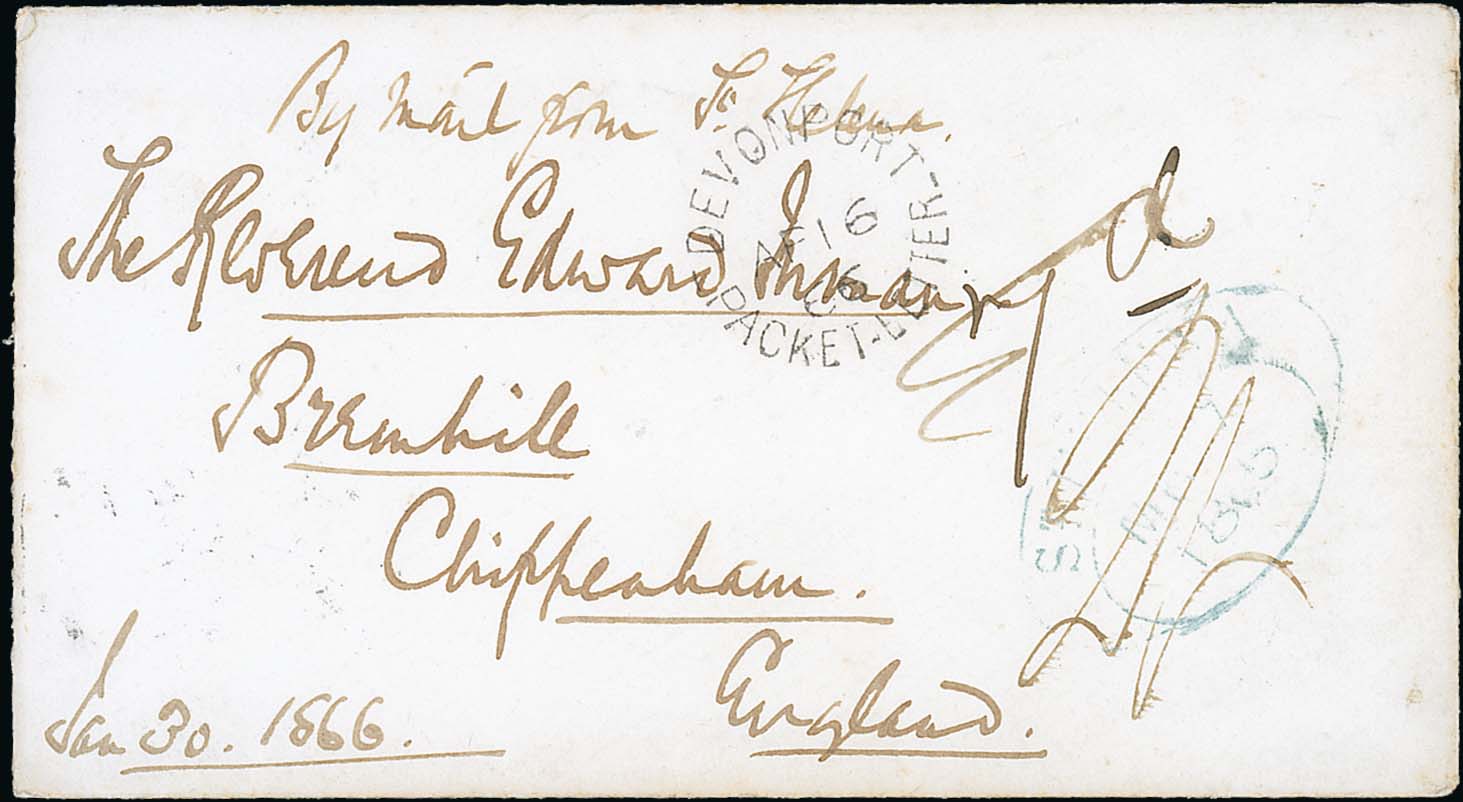 By Mail from St. Helena.
The Reverend Edward Inman
Bremhill
Chippenham.
England.
Jan 30. 1866.
DEVONPORT-
PACKET-LETTER-
AP 16
66
d
1866